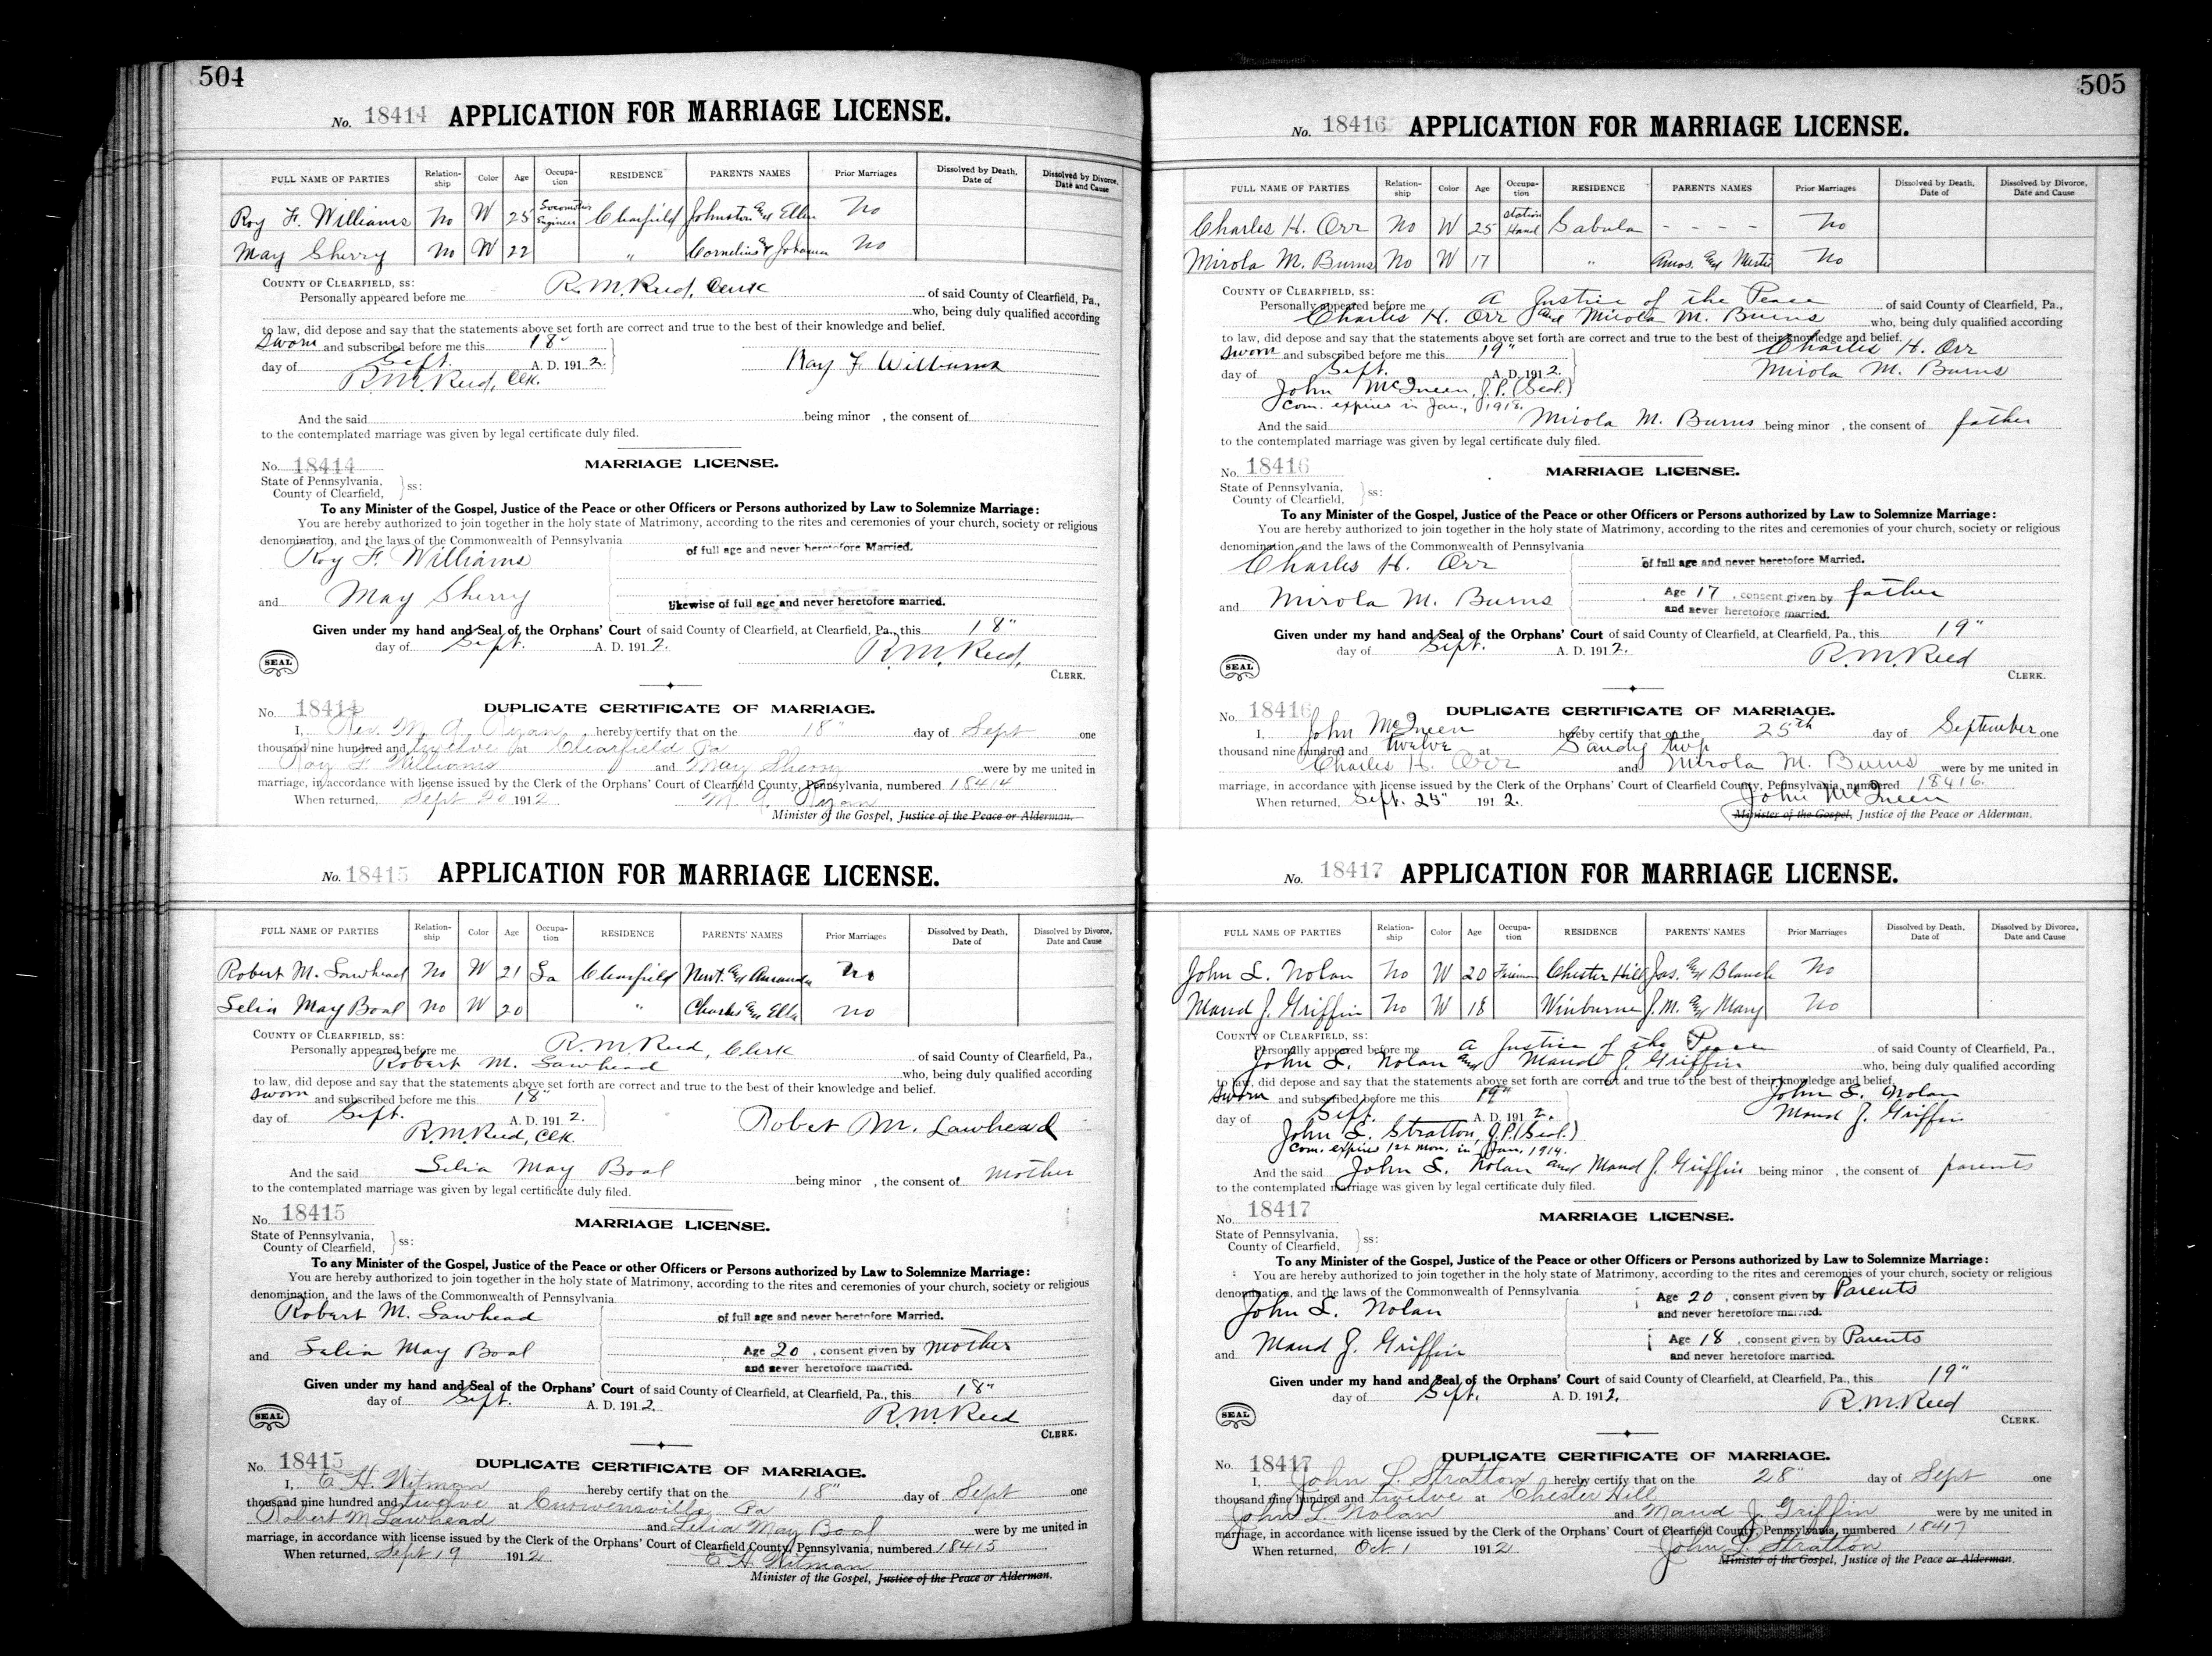 504
No. 18414 APPLICATION FOR MARRIAGE LICENSE.
FULL NAME OF PARTIES Relation-ship Color Age Occupa-tion RESIDENCE PARENTS NAMES Prior Marriages Dissolved by Death, Date of Dissolved by Divorce, Date and Cause
Roy F. Williams No W 25 Locomotive Engineer Clearfield Johnston and Ellen No
May Sherry No W 22 " Cornelius & Johanna No
COUNTY OF CLEARFIELD, ss:
Personally appeared before me R.M. Reed, Clerk of said County of Clearfield, Pa.,
who, being duly qualified according
to law, did depose and say that the statements above set forth are correct and true to the best of their knowledge and belief.
Sworn and subscribed before me this 18"
day of Sept. A. D. 1912. Ray F Williams
R.M. Reed, Clk.
And the said being minor , the consent of
to the contemplated marriage was given by legal certificate duly filed.
No. 18414 MARRIAGE LICENSE.
State of Pennsylvania,
County of Clearfield, ss:
To any Minister of the Gospel, Justice of the Peace or other Officers or Persons authorized by Law to Solemnize Marriage:
You are hereby authorized to join together in the holy state of Matrimony, according to the rites and ceremonies of your church, society or religious
denomination, and the laws of the Commonwealth of Pennsylvania
Roy F. Williams of full age and never heretofore Married.
and May Sherry likewise of full age and never heretofore married.
Given under my hand and Seal of the Orphans' Court of said County of Clearfield, at Clearfield, Pa., this 18"
day of Sept. A. D. 1912.
SEAL R.M. Reed,
CLERK.
No. 18414 DUPLICATE CERTIFICATE OF MARRIAGE.
I, Rev. M. A. Ryan hereby certify that on the 18" day of Sept one
thousand nine hundred and twelve at Clearfield Pa
Roy F Williams and May Sherry were by me united in
marriage, in accordance with license issued by the Clerk of the Orphans' Court of Clearfield County, Pennsylvania, numbered 18414
When returned, Sept 20 1912 M. A. Ryan
Minister of the Gospel, Justice of the Peace or Alderman.
No. 18415 APPLICATION FOR MARRIAGE LICENSE.
FULL NAME OF PARTIES Relation-ship Color Age Occupa-tion RESIDENCE PARENTS' NAMES Prior Marriages Dissolved by Death, Date of Dissolved by Divorce, Date and Cause
Robert M. Lawhead No W 21 La Clearfield Newt. and Amanda No
Lelia May Boal No W 20 " Charles and Ella No
COUNTY OF CLEARFIELD, ss:
Personally appeared before me R.M. Reed, Clerk of said County of Clearfield, Pa.,
Robert M. Lawhead who, being duly qualified according
to law, did depose and say that the statements above set forth are correct and true to the best of their knowledge and belief.
Sworn and subscribed before me this 18"
day of Sept. A. D. 1912. Robert M. Lawhead
R.M. Reed, Clk.
And the said Lelia May Boal being minor , the consent of mother
to the contemplated marriage was given by legal certificate duly filed.
No. 18415 MARRIAGE LICENSE.
State of Pennsylvania,
County of Clearfield, ss:
To any Minister of the Gospel, Justice of the Peace or other Officers or Persons authorized by Law to Solemnize Marriage:
You are hereby authorized to join together in the holy state of Matrimony, according to the rites and ceremonies of your church, society or religious
denomination, and the laws of the Commonwealth of Pennsylvania
Robert M. Lawhead of full age and never heretofore Married.
and Lelia May Boal Age 20 , consent given by mother
and never heretofore married.
Given under my hand and Seal of the Orphans' Court of said County of Clearfield, at Clearfield, Pa., this 18"
day of Sept. A. D. 1912.
SEAL R.M. Reed
CLERK.
No. 18415 DUPLICATE CERTIFICATE OF MARRIAGE.
I, E H. Witman hereby certify that on the 18" day of Sept one
thousand nine hundred and twelve at Curwensville Pa
Robert M Lawhead and Lelia May Boal were by me united in
marriage, in accordance with license issued by the Clerk of the Orphans' Court of Clearfield County, Pennsylvania, numbered 18415
When returned, Sept 19 1912 E H. Witman
Minister of the Gospel, Justice of the Peace or Alderman.
505
No. 18416 APPLICATION FOR MARRIAGE LICENSE.
FULL NAME OF PARTIES Relation-ship Color Age Occupa-tion RESIDENCE PARENTS NAMES Prior Marriages Dissolved by Death, Date of Dissolved by Divorce, Date and Cause
Charles H. Orr No W 25 Station Hand Sabula - - - - No
Mirola M. Burns No W 17 " Amos. and No
COUNTY OF CLEARFIELD, ss:
Personally appeared before me a Justice of the Peace of said County of Clearfield, Pa.,
Charles H. Orr and Mirola M. Burns who, being duly qualified according
to law, did depose and say that the statements above set forth are correct and true to the best of their knowledge and belief.
Sworn and subscribed before me this 19" Charles H. Orr
day of Sept. A. D. 1912. Mirola M. Burns
John McQueen, J.P. (Seal)
Com. expires in Jan., 1918.
And the said Mirola M. Burns being minor , the consent of father
to the contemplated marriage was given by legal certificate duly filed.
No. 18416 MARRIAGE LICENSE.
State of Pennsylvania,
County of Clearfield, ss:
To any Minister of the Gospel, Justice of the Peace or other Officers or Persons authorized by Law to Solemnize Marriage:
You are hereby authorized to join together in the holy state of Matrimony, according to the rites and ceremonies of your church, society or religious
denomination, and the laws of the Commonwealth of Pennsylvania
Charles H. Orr of full age and never heretofore Married.
and Mirola M. Burns Age 17 , consent given by father
and never heretofore married.
Given under my hand and Seal of the Orphans' Court of said County of Clearfield, at Clearfield, Pa., this 19"
day of Sept. A. D. 1912.
SEAL R.M. Reed
CLERK.
No. 18416 DUPLICATE CERTIFICATE OF MARRIAGE.
I, John McQueen hereby certify that on the 25th day of September one
thousand nine hundred and twelve at Sandy twp
Charles H. Orr and Mirola M. Burns were by me united in
marriage, in accordance with license issued by the Clerk of the Orphans' Court of Clearfield County, Pennsylvania, numbered 18416.
When returned, Sept. 25" 1912. John McQueen
Minister of the Gospel, Justice of the Peace or Alderman.
No. 18417 APPLICATION FOR MARRIAGE LICENSE.
FULL NAME OF PARTIES Relation-ship Color Age Occupa-tion RESIDENCE PARENTS' NAMES Prior Marriages Dissolved by Death, Date of Dissolved by Divorce, Date and Cause
John L. Nolan No W 20 Fireman Chester Hill Jas. and Blanch No
Maud J. Griffin No W 18 Winburne J.M. and Mary No
COUNTY OF CLEARFIELD, ss:
Personally appeared before me a Justice of the Peace of said County of Clearfield, Pa.,
John L. Nolan and Maud J. Griffin who, being duly qualified according
to law, did depose and say that the statements above set forth are correct and true to the best of their knowledge and belief.
Sworn and subscribed before me this 19" John L. Nolan
day of Sept. A. D. 1912. Maud J. Griffin
John L. Stratton, J.P. (Seal)
Com. expires 1st mon. in Jan. 1914.
And the said John L. Nolan and Maud J. Griffin being minor , the consent of parents
to the contemplated marriage was given by legal certificate duly filed.
No. 18417 MARRIAGE LICENSE.
State of Pennsylvania,
County of Clearfield, ss:
To any Minister of the Gospel, Justice of the Peace or other Officers or Persons authorized by Law to Solemnize Marriage:
You are hereby authorized to join together in the holy state of Matrimony, according to the rites and ceremonies of your church, society or religious
denomination, and the laws of the Commonwealth of Pennsylvania
John L. Nolan Age 20 , consent given by Parents
and never heretofore married.
and Maud J. Griffin Age 18 , consent given by Parents
and never heretofore married.
Given under my hand and Seal of the Orphans' Court of said County of Clearfield, at Clearfield, Pa., this 19"
day of Sept. A. D. 1912.
SEAL R.M. Reed
CLERK.
No. 18417 DUPLICATE CERTIFICATE OF MARRIAGE.
I, John L. Stratton hereby certify that on the 28" day of Sept one
thousand nine hundred and twelve at Chester Hill
John L Nolan and Maud J. Griffin were by me united in
marriage, in accordance with license issued by the Clerk of the Orphans' Court of Clearfield County, Pennsylvania, numbered 18417
When returned, Oct. 1 1912 John L. Stratton
Minister of the Gospel, Justice of the Peace or Alderman.